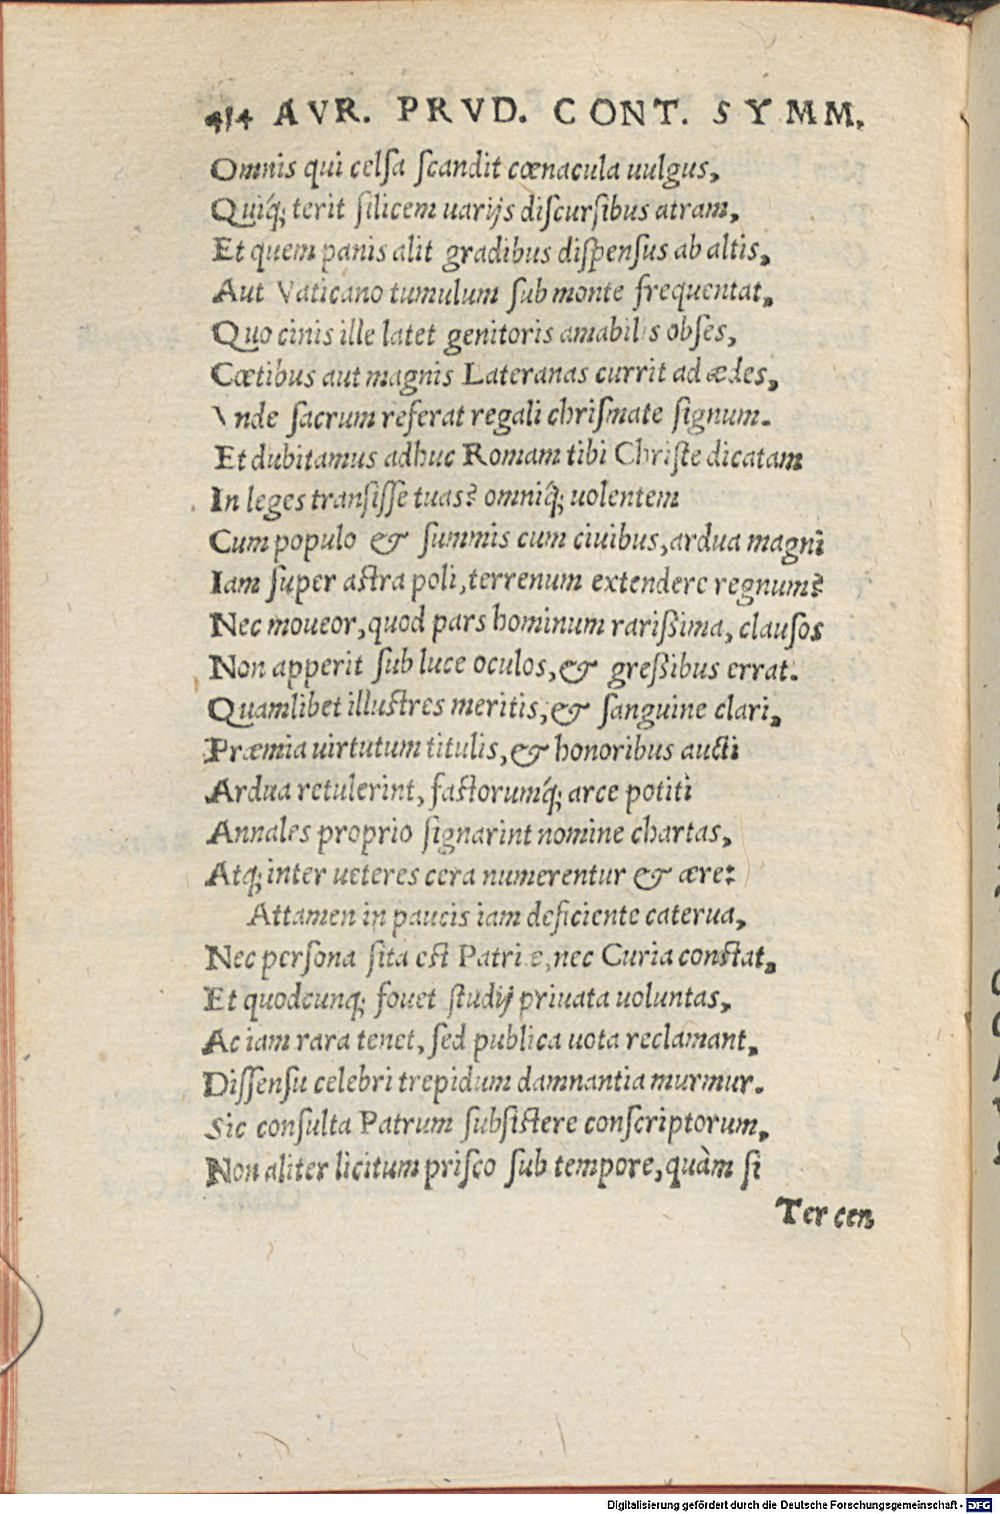 414 AVR. PRVD. CONT. SYMM.
Omnis qui celſa ſcandit cœnacula uulgus,
Quiq́; terit ſilicem uarijs diſcurſibus atram,
Et quem panis alit gradibus diſpenſus ab altis,
Aut Vaticano tumulum ſub monte frequentat,
Quo cinis ille latet genitoris amabilis obſes,
Cœtibus aut magnis Lateranas currit ad ædes,
Vnde ſacrum referat regali chriſmate ſignum.
Et dubitamus adhuc Romam tibi Chriſte dicatam
In leges tranſiſſe tuas? omniq́; uolentem
Cum populo & ſummis cum ciuibus, ardua magni
Iam ſuper aſtra poli, terrenum extendere regnum?
Nec moueor, quod pars hominum rariſſima, clauſos
Non apperit ſub luce oculos, & greſſibus errat.
Quamlibet illuſtres meritis, & ſanguine clari,
Præmia uirtutum titulis, & honoribus aucti
Ardua retulerint, faſtorumq́; arce potiti
Annales proprio ſignarint nomine chartas,
Atq; inter ueteres cera numerentur & ære:
Attamen in paucis iam deficiente caterua,
Nec perſona ſita eſt Patriæ, nec Curia conſtat,
Et quodcunq; fouet ſtudij priuata uoluntas,
Ac iam rara tenet, ſed publica uota reclamant,
Diſſenſu celebri trepidum damnantia murmur.
Sic conſulta Patrum ſubſiſtere conſcriptorum,
Non aliter licitum priſco ſub tempore, quàm ſi
Ter cen
Digitalisierung gefördert durch die Deutsche Forschungsgemeinschaft - DFG